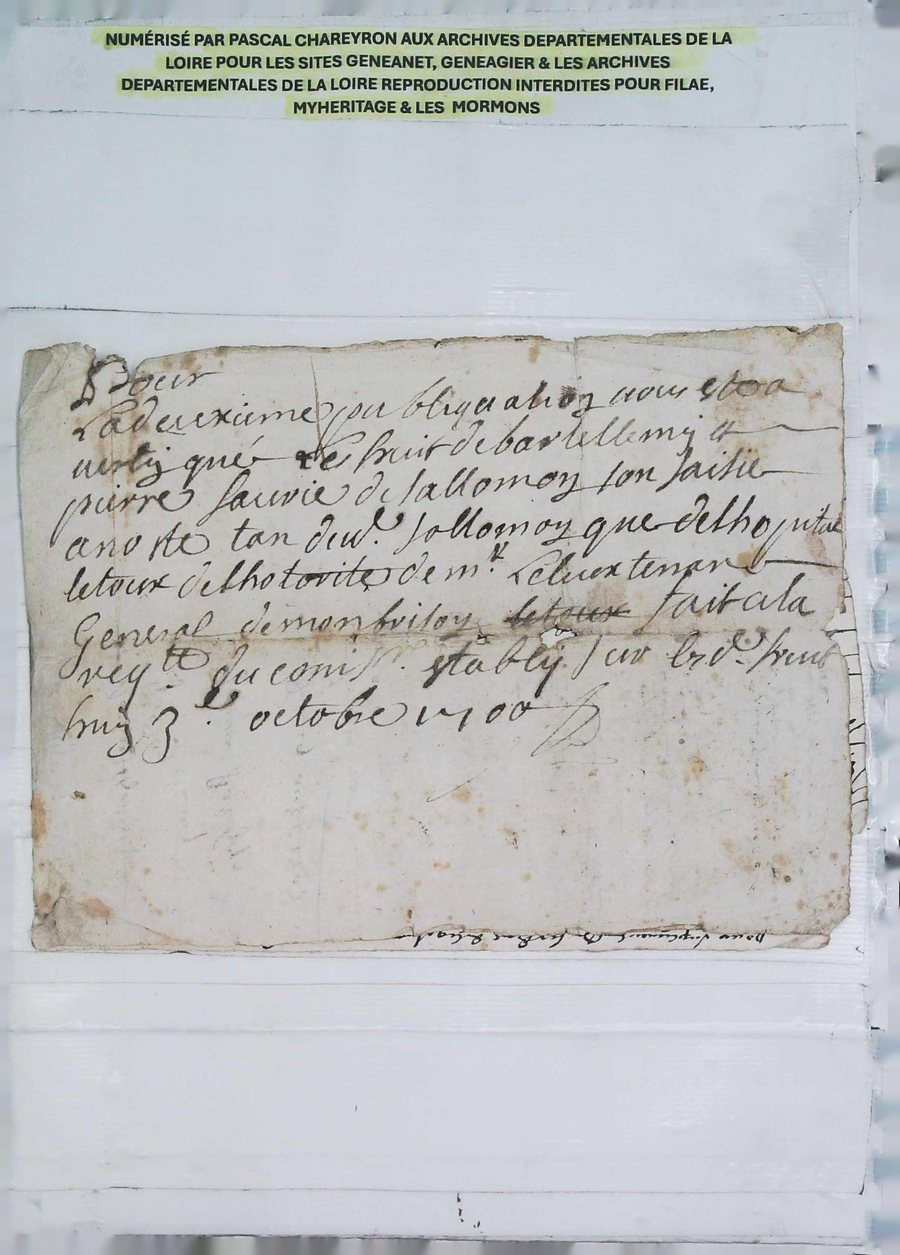 NUMÉRISÉ PAR PASCAL CHAREYRON AUX ARCHIVES DEPARTEMENTALES DE LA
LOIRE POUR LES SITES GENEANET, GENEAGIER & LES ARCHIVES
DEPARTEMENTALES DE LA LOIRE REPRODUCTION INTERDITES POUR FILAE,
MYHERITAGE & LES MORMONS
Pour
La deuxieme publiquation vous
le fruit de bartellemy et
pierre sauvie de sallomon son saisie
tan dud. sollomon que delhopital
letoux delhotorite de mr. Le lieutenan
General de monbrison letoux fait a la
reqtte du comisr. estably sur lesd. fruit
3 octobre 1700